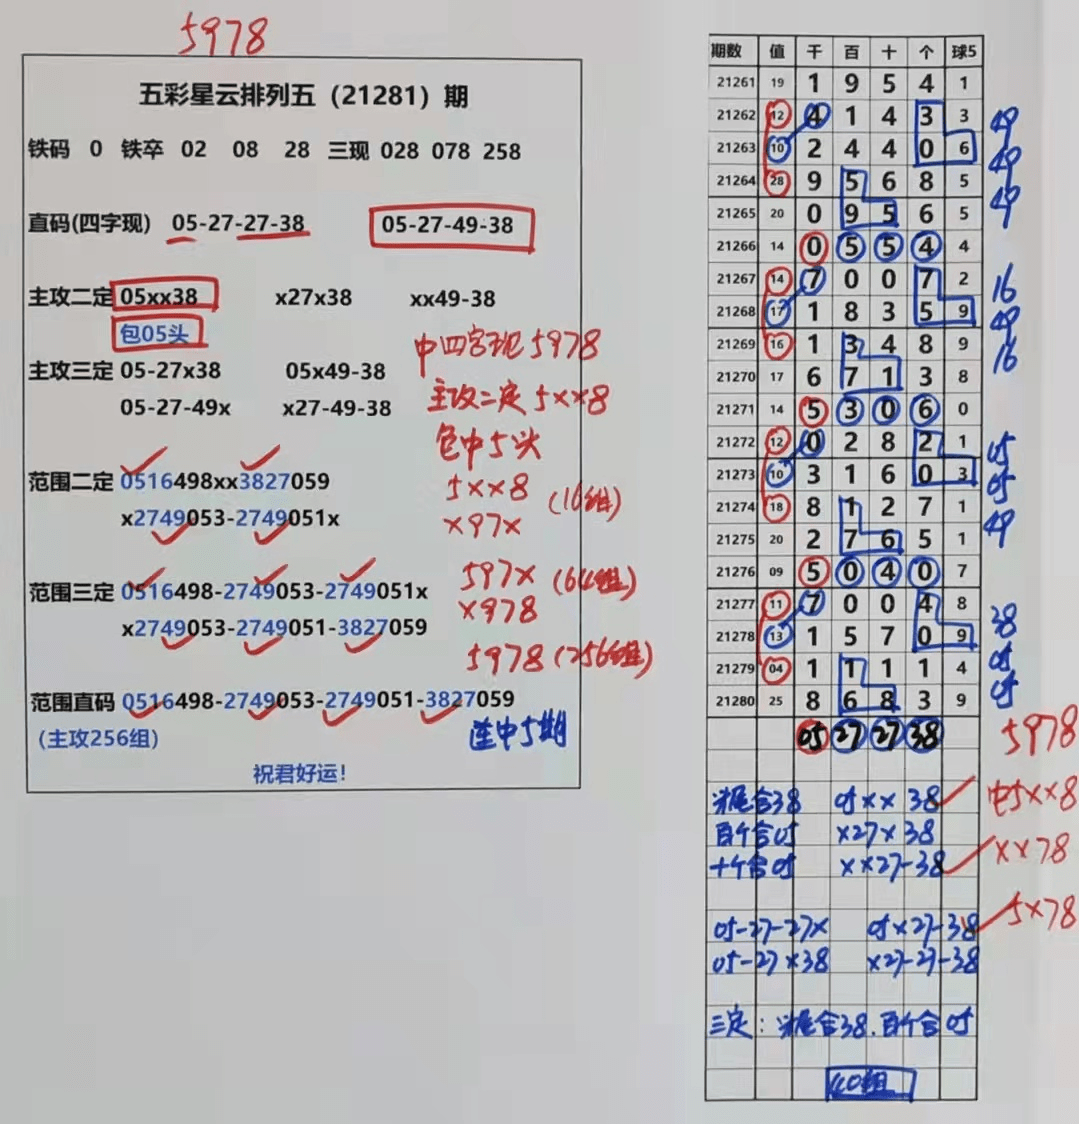 5978
五彩星云排列五（21281）期
铁码 0 铁卒 02 08 28 三现 028 078 258
直码(四字现) 05-27-27-38 05-27-49-38
主攻二定 05xx38 x27x38 xx49-38
包05头
中四字现5978
主攻三定 05-27x38 05x49-38
主攻二定5xx8
05-27-49x x27-49-38
包中5头
范围二定 0516498xx3827059
5xx8 (16组)
x2749053-2749051x
x97x
范围三定 0516498-2749053-2749051x
597x (64组)
x2749053-2749051-3827059
x978
5978 (256组)
范围直码 0516498-2749053-2749051-3827059
(主攻256组)
连中5期
祝君好运！
期数 值 千 百 十 个 球5
21261 19 1 9 5 4 1
21262 12 4 1 4 3 3 49
21263 10 2 4 4 0 6 49
21264 28 9 5 6 8 5 49
21265 20 0 9 5 6 5
21266 14 0 5 5 4 4
21267 14 7 0 0 7 2 16
21268 17 1 8 3 5 9 49
21269 16 1 3 4 8 9 16
21270 17 6 7 1 3 8
21271 14 5 3 0 6 0
21272 12 0 2 8 2 1 05
21273 10 3 1 6 0 3 05
21274 18 8 1 2 7 1 49
21275 20 2 7 6 5 1
21276 09 5 0 4 0 7
21277 11 7 0 0 4 8 38
21278 13 1 5 7 0 9 05
21279 04 1 1 1 1 4 05
21280 25 8 6 8 3 9
05 27 27 38 5978
头尾合38 05xx 38 中5xx8
百个合05 x27x38
十个合05 xx27-38 xx78
05-27-27x 05x27-38 5x78
05-27x38 x27-27-38
三定：头尾合38.百个合05
40组